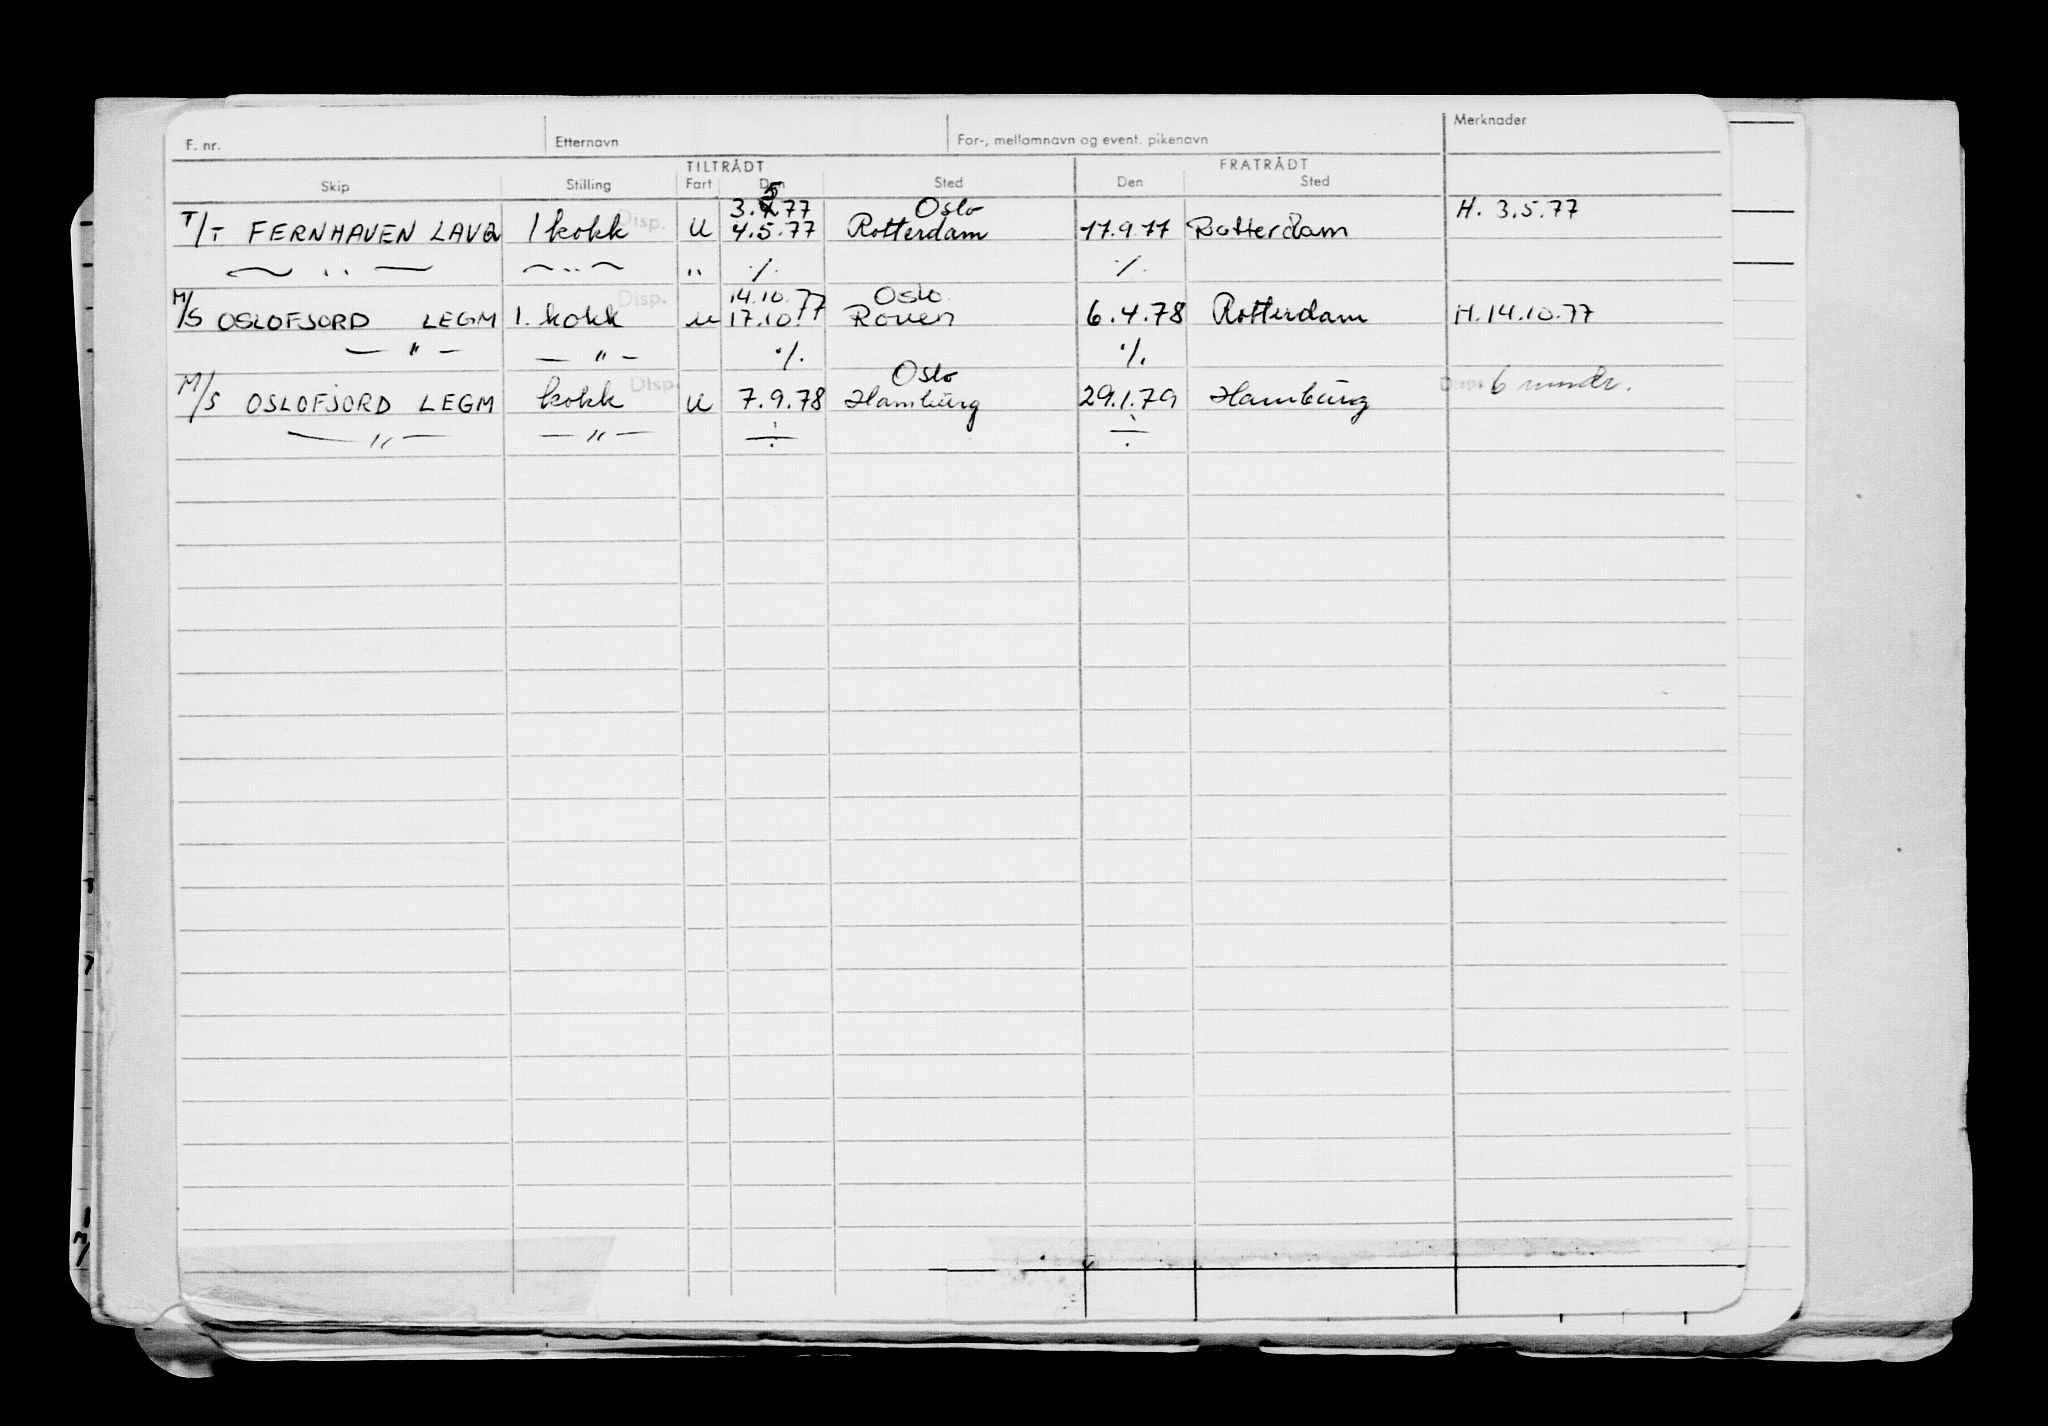 F. nr. Etternavn For-, mellomnavn og event. pikenavn Merknader
TILTRÅDT FRATRÅDT
Skip Stilling Fart Den Sted Den Sted
3.5.77 Oslo H. 3.5.77
T/T FERNHAVEN LAVQ 1 kokk Disp. U 4.5.77 Rotterdam 17.9.77 Rotterdam
— " — — " — " ./. ./.
14.10.77 Oslo
M/S OSLOFJORD LEGM 1. kokk Disp. U 17.10.77 Rouen 6.4.78 Rotterdam H.14.10.77
— " — — " — ./. ./.
Oslo
M/S OSLOFJORD LEGM kokk Disp. U 7.9.78 Hamburg 29.1.79 Hamburg Disp. 6 mndr.
— " — — " — ÷ ÷